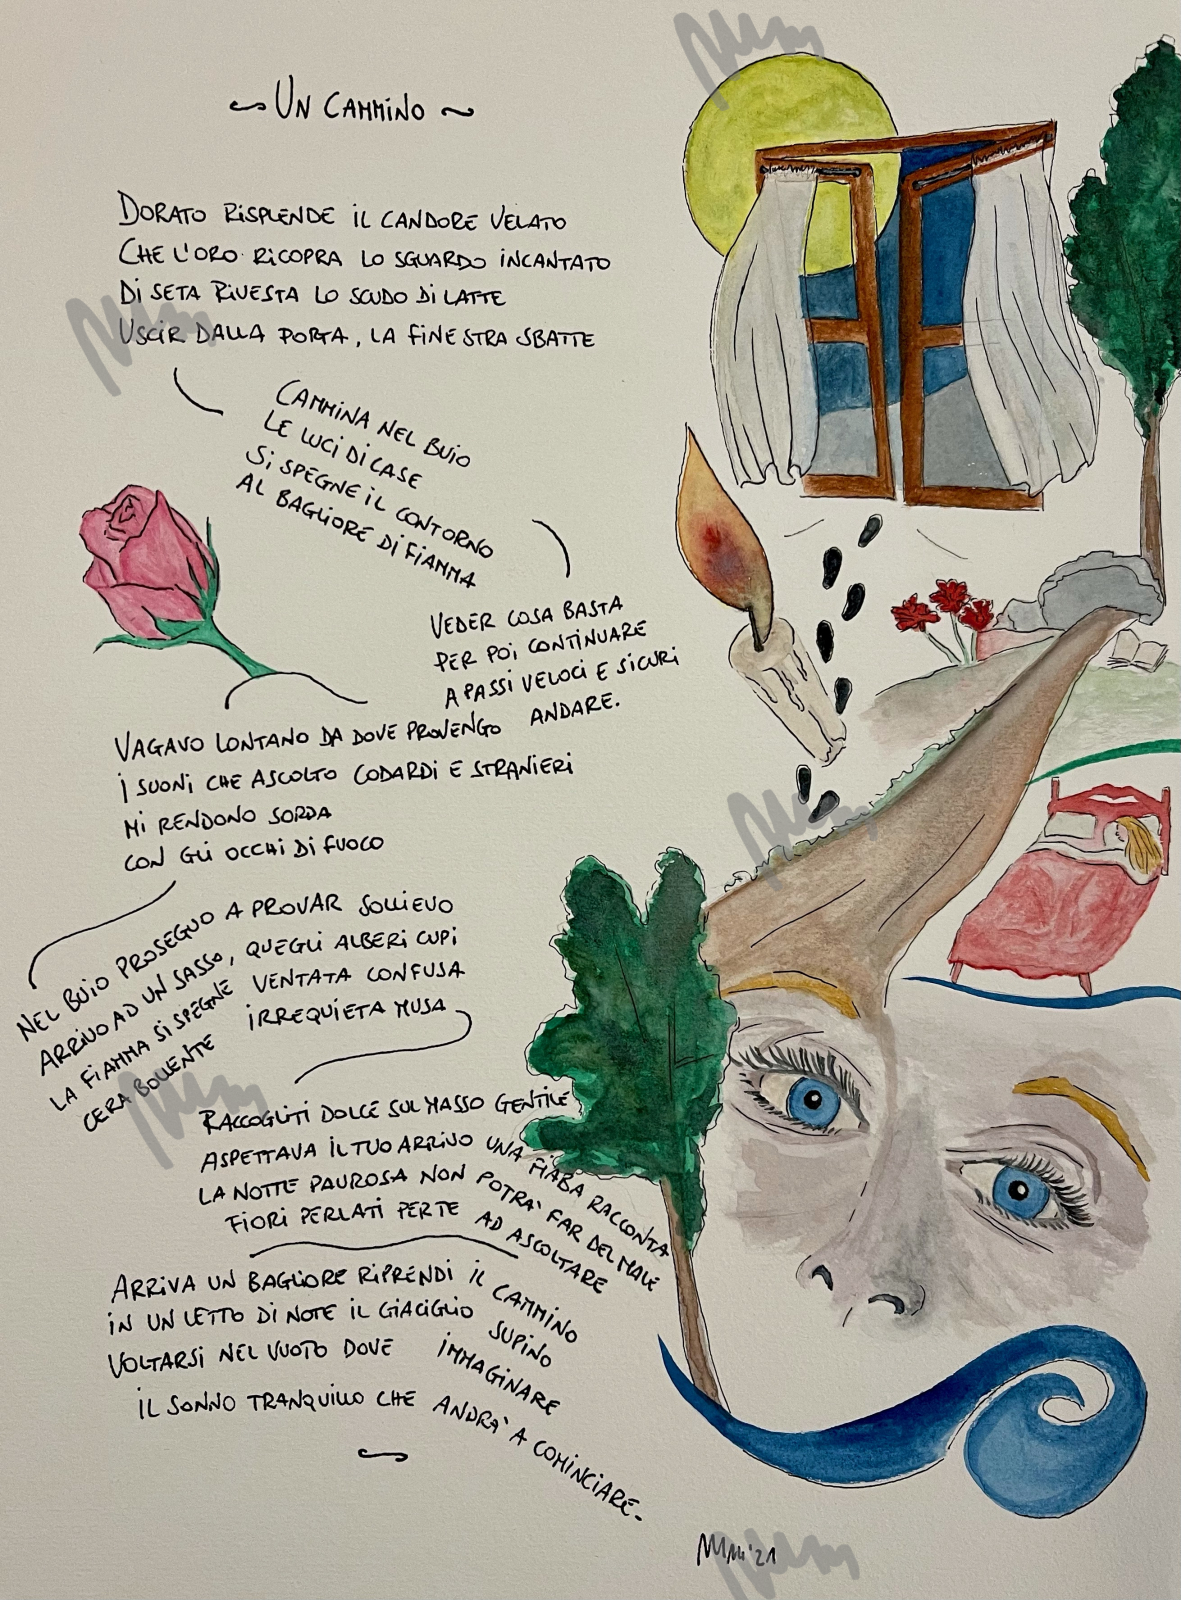 ~ UN CAMMINO ~
DORATO RISPLENDE IL CANDORE VELATO
CHE L'ORO RICOPRA LO SGUARDO INCANTATO
DI SETA RIVESTA LO SCUDO DI LATTE
USCIR DALLA PORTA, LA FINESTRA SBATTE
CAMMINA NEL BUIO
LE LUCI DI CASE
SI SPEGNE IL CONTORNO
AL BAGLIORE DI FIAMMA
VEDER COSA BASTA
PER POI CONTINUARE
A PASSI VELOCI E SICURI
ANDARE.
VAGAVO LONTANO DA DOVE PROVENGO
I SUONI CHE ASCOLTO CODARDI E STRANIERI
MI RENDONO SORDA
CON GLI OCCHI DI FUOCO
NEL BUIO PROSEGUO A PROVAR SOLLIEVO
ARRIVO AD UN SASSO, QUEGLI ALBERI CUPI
LA FIAMMA SI SPEGNE VENTATA CONFUSA
CERA BOLLENTE IRREQUIETA MUSA
RACCOGLITI DOLCE SUL MASSO GENTILE
ASPETTAVA IL TUO ARRIVO UNA FIABA RACCONTA
LA NOTTE PAUROSA NON POTRA' FAR DEL MALE
FIORI PERLATI PER TE AD ASCOLTARE
ARRIVA UN BAGLIORE RIPRENDI IL CAMMINO
IN UN LETTO DI NOTE IL GIACIGLIO SUPINO
VOLTARSI NEL VUOTO DOVE IMMAGINARE
IL SONNO TRANQUILLO CHE ANDRA' A COMINCIARE.
'21